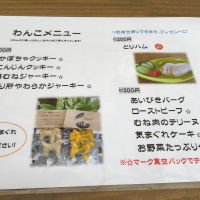 わんこメニュー
00円
かぼちゃクッキー ☆
こんじんクッキー ☆
むねジャーキー ☆
り肝やわらかジャーキー ☆
まぐれ
ださい!
¥200円
とりハム
¥300円
あいびきバーグ
ローストビーフ ☆
むね肉のテリーヌ
気まぐれケーキ☆
お野菜たっぷり
※☆マーク真空パックで